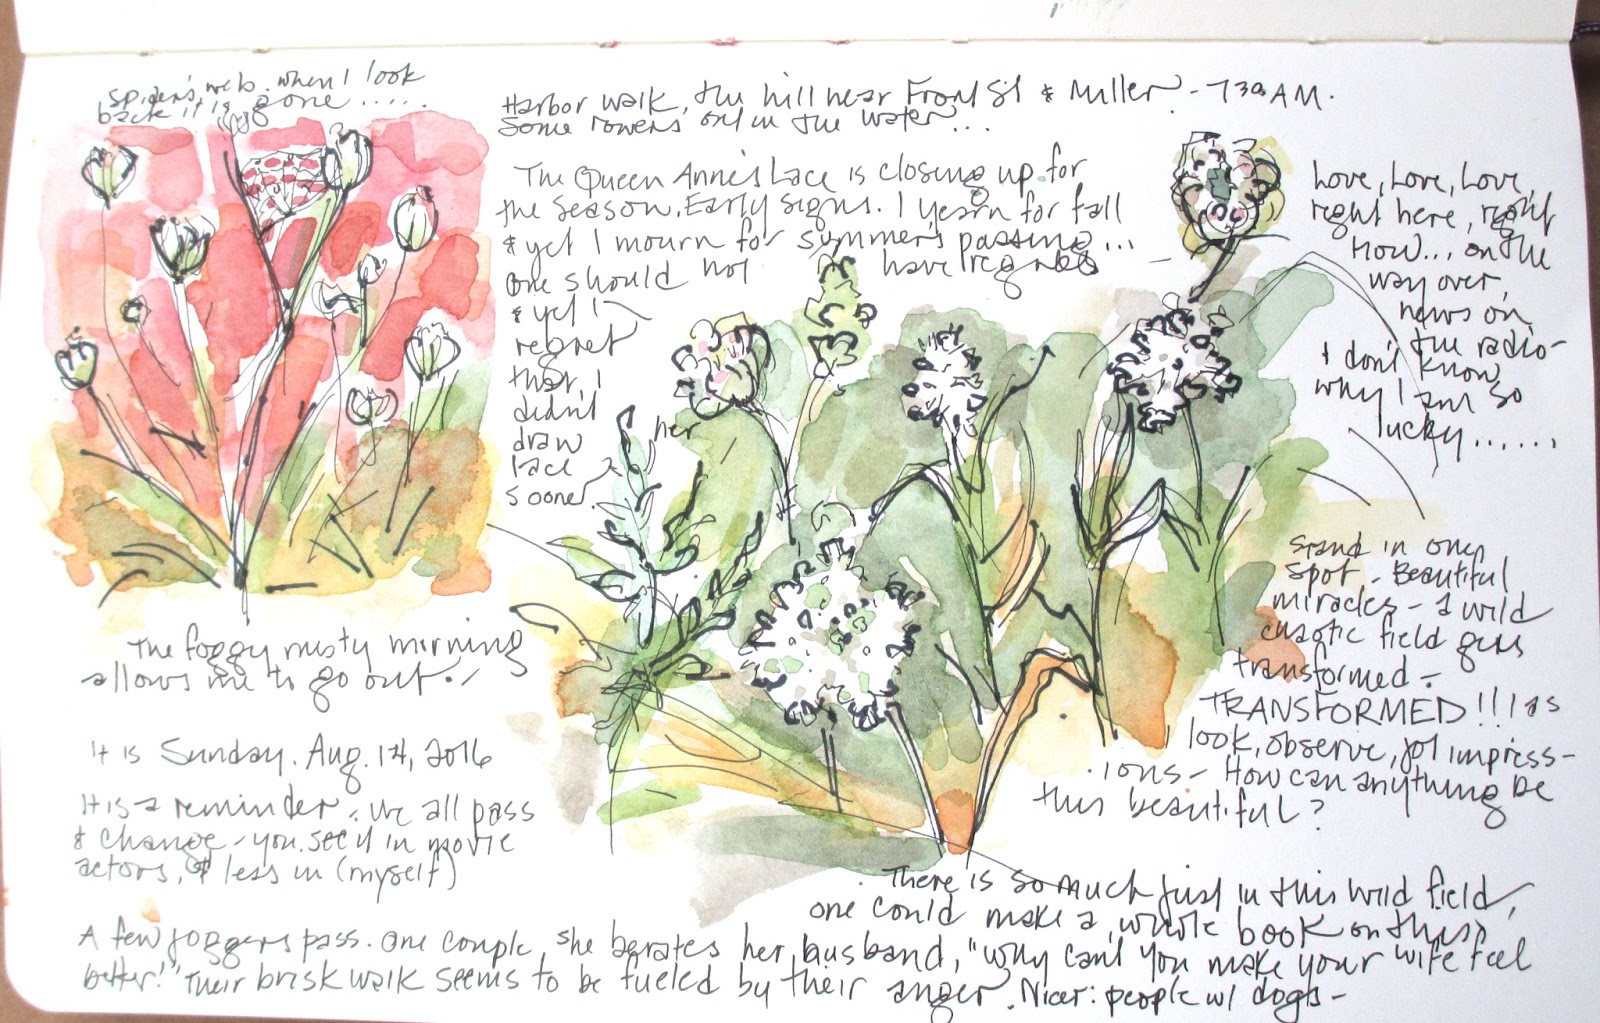 spider's web. when I look
back it is gone.....
Harbor walk, the hill near Front St & Miller - 730 AM.
Some rowers out in the water...
The Queen Anne's Lace is closing up for
the season. Early signs. I yearn for fall
& yet I mourn for summer's passing...
one should not have regrets
& yet I
regret
that I
didn't
draw her
lace
sooner
Love, Love, Love,
right here, right
now... on the
way over,
news on
the radio-
& I don't know
why I am so
lucky......
Stand in one
spot - Beautiful
miracles - a wild
chaotic field gets
transformed -
TRANSFORMED!!! as
look, observe, jot impress-
ions - How can anything be
this beautiful?
The foggy misty morning
allows me to go out.
It is Sunday. Aug. 14, 2016
It is a reminder. we all pass
& change - you see it in movie
actors, & less in (myself)
There is so much just in this wild field,
one could make a whole book on this
A few joggers pass. One couple, she berates her husband, "why can't you make your wife feel
better!" Their brisk walk seems to be fueled by their anger. Nicer: people w/ dogs -